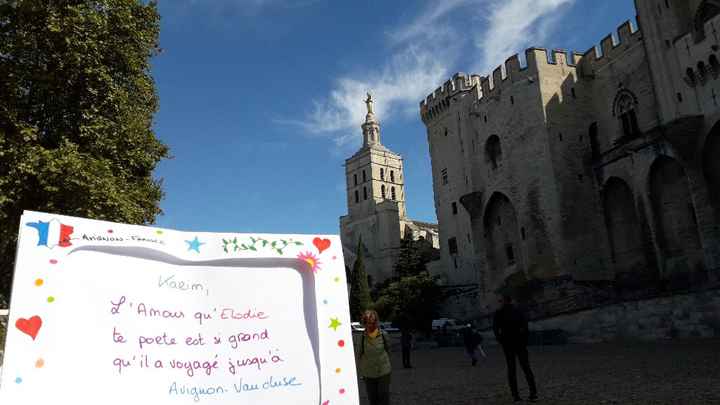 Avignon-France
Karim,
L'Amour qu'Elodie
te porte est si grand
qu'il a voyagé jusqu'à
Avignon-Vaucluse